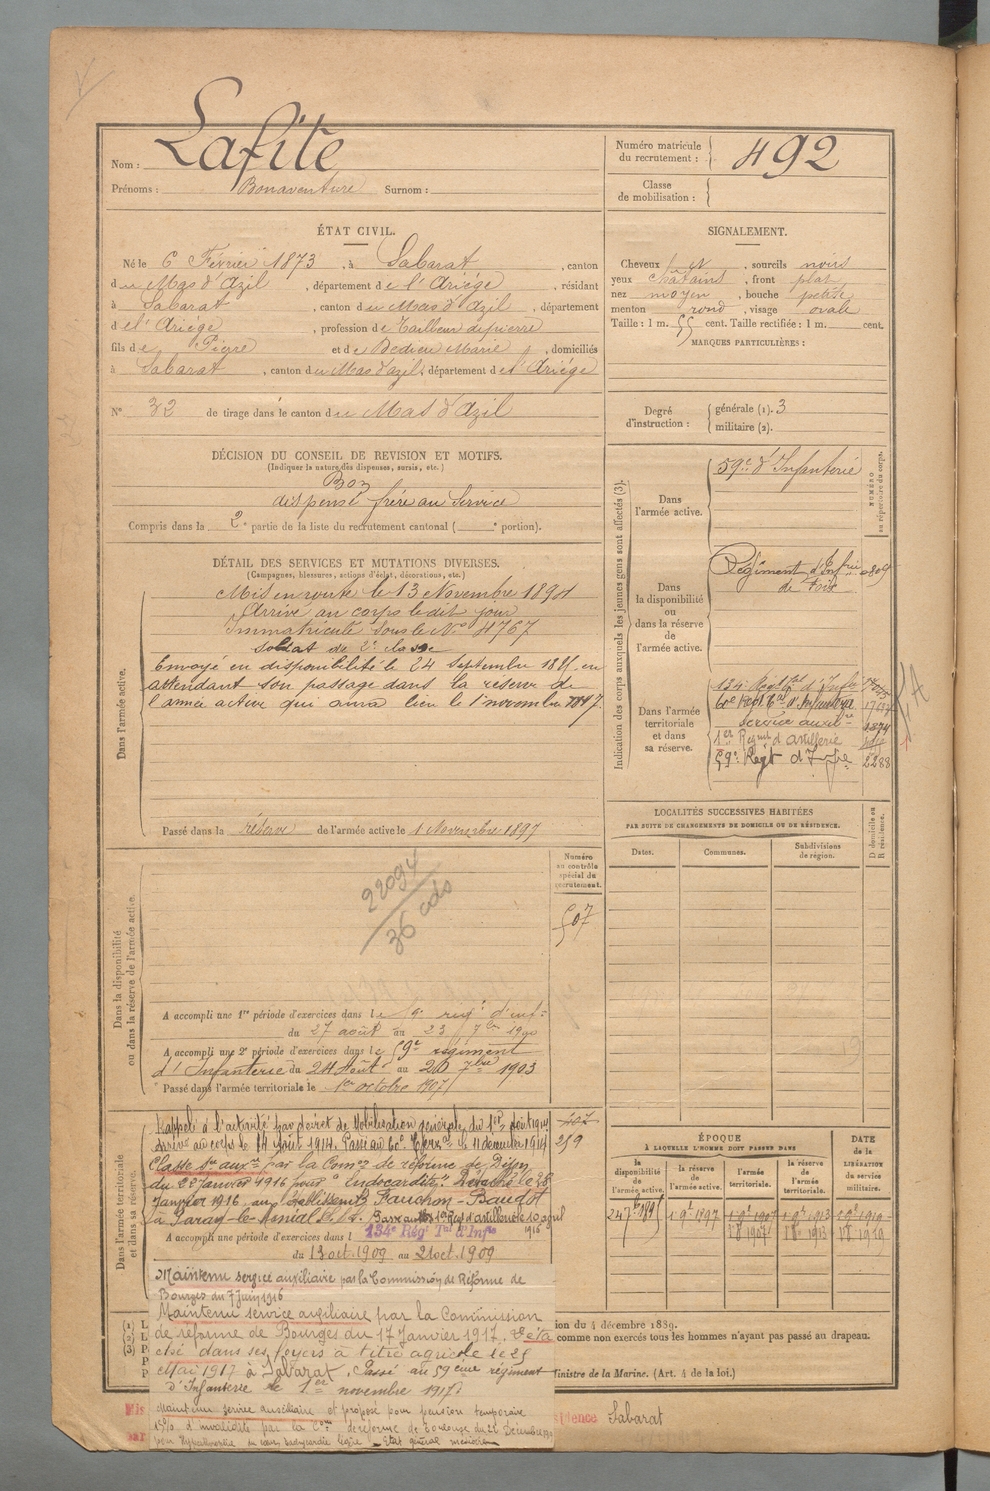 Nom : Lafite
Prénoms : Bonaventure Surnom :
Numéro matricule du recrutement : 492
Classe de mobilisation :
ÉTAT CIVIL.
Né le 6 Février 1873, à Sabarat, canton
du Mas d'Azil, département de l'Ariége, résidant
à Sabarat, canton du Mas d'Azil, département
de l'Ariége, profession de Tailleur de pierre
fils de Pierre et de Bedieu Marie, domiciliés
à Sabarat, canton du Mas d'azil, département de l'Ariége
N° 32 de tirage dans le canton du Mas d'Azil
SIGNALEMENT.
Cheveux et, sourcils noirs
yeux châtains, front plat
nez moyen, bouche petite
menton rond, visage ovale
Taille : 1 m. 55 cent. Taille rectifiée : 1 m. cent.
MARQUES PARTICULIÈRES :
Degré d'instruction : générale (1). 3
militaire (2).
DÉCISION DU CONSEIL DE REVISION ET MOTIFS.
(Indiquer la nature des dispenses, sursis, etc.)
Bon
dispensé frère au Service
Compris dans la 2e partie de la liste du recrutement cantonal ( e portion).
DÉTAIL DES SERVICES ET MUTATIONS DIVERSES.
(Campagnes, blessures, actions d'éclat, décorations, etc.)
Dans l'armée active.
Mis en route le 13 Novembre 1894
Arrivé au corps le dit jour
Immatriculé sous le N° 4767
soldat de 2e classe
Envoyé en disponibilité le 24 septembre 1895 en
attendant son passage dans la réserve de
l'armée active qui aura lieu le 1 novembre 1897
Passé dans la réserve de l'armée active le 1 Novembre 1897
Indication des corps auxquels les jeunes gens sont affectés (3).
NUMÉRO au répertoire du corps.
Dans l'armée active.
59e d'Infanterie
Dans la disponibilité ou dans la réserve de l'armée active.
Régiment d'Infrie
de Foix
Dans l'armée territoriale et dans sa réserve.
134e Regt tal d'Infie
60e Regt tal d'Infanterie
service auxil re 1874
1er Regiment d'artillerie
59e Régt d'Infie 2288
LOCALITÉS SUCCESSIVES HABITÉES
PAR SUITE DE CHANGEMENTS DE DOMICILE OU DE RÉSIDENCE.
Dates. Communes. Subdivisions de région.
D domicile ou R résidence.
Dans la disponibilité ou dans la réserve de l'armée active.
Numéro au contrôle spécial du recrutement.
507
22094
36 cds
A accompli une 1re période d'exercices dans le 59e regt d'inf.
du 27 août au 23 7bre 1900
A accompli une 2e période d'exercices dans le 59e régiment
d'Infanterie du 24 Août au 20 7bre 1903
Passé dans l'armée territoriale le 1er octobre 1907
Dans l'armée territoriale et dans sa réserve.
Rappelé à l'activité par décret de Mobilisation générale du 1er Août 1914
Arrivé au corps le 14 Août 1914. Passé au 60e Terral le 11 décembre 1914
Classé Sce auxre par la Comon de réforme de Dijon
du 22 Janvier 1916 pour "Endocardite". Détaché le 28
Janvier 1916 au l'établissemt Fauchon-Baudot
à Paray-le-Monial S. & L. Passé au 1er Regt d'artillerie le 10 avril
1916
A accompli une période d'exercices dans le 134e Régt Tal d'Infie
du 13 oct. 1909 au 21 oct. 1909
407
259
Maintenu service auxiliaire par la Commission de Réforme de
Bourges du 7 Juin 1916
Maintenu service auxiliaire par la Commission
de réforme de Bourges du 17 Janvier 1917. Déta
ché dans ses foyers à titre agricole le 25
Mai 1917 à Sabarat. Passé au 59ème régiment
D'Infanterie le 1er novembre 1917.
Maintenu service auxiliaire et proposé pour pension temporaire
15% d'invalidité par la Con de réforme de Toulouse du 22 Décembre
pour Hypertrophie du coeur, tachycardie légère. Etat général médiocre
ÉPOQUE
À LAQUELLE L'HOMME DOIT PASSER DANS
la disponibilité de l'armée active. la réserve de l'armée active. l'armée territoriale. la réserve de l'armée territoriale.
DATE de la LIBÉRATION du service militaire.
24 7bre 1895 1 9bre 1897 1 9bre 1907 1 9bre 1913 1 9bre 1919
1 8bre 1907 1 8bre 1913 1 8bre 1919
ion du 4 décembre 1889.
comme non exercés tous les hommes n'ayant pas passé au drapeau.
Ministre de la Marine. (Art. 4 de la loi.)
sidence Sabarat